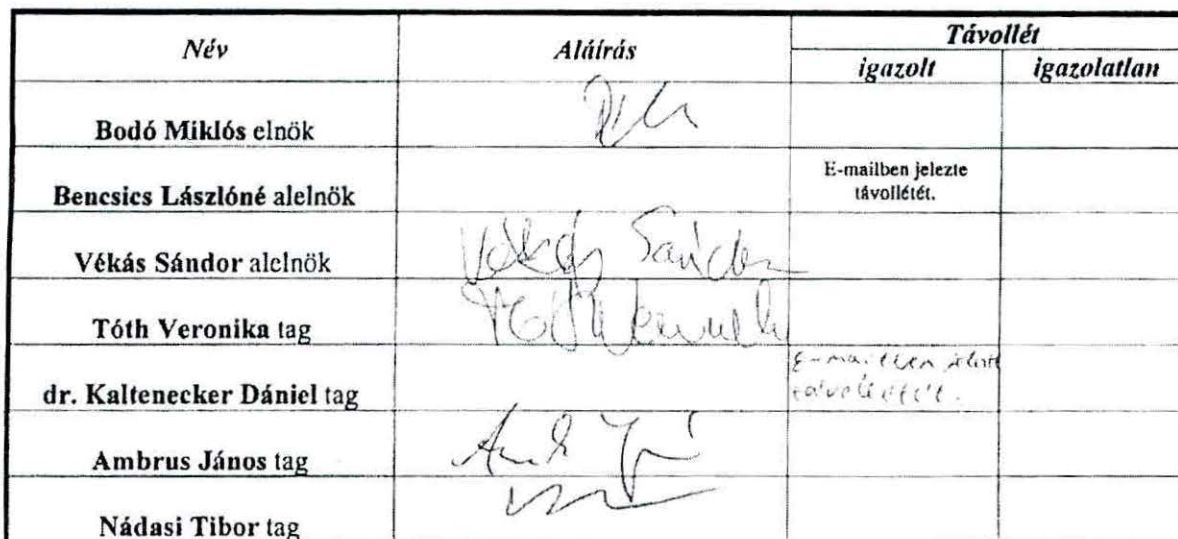 Név Aláírás Távollét
igazolt igazolatlan
Bodó Miklós elnök
Bencsics Lászlóné alelnök E-mailben jelezte
távollétét.
Vékás Sándor alelnök Vékás Sándor
Tóth Veronika tag Tóth Veronika
dr. Kaltenecker Dániel tag E-mailben jelezte
távollétét.
Ambrus János tag
Nádasi Tibor tag